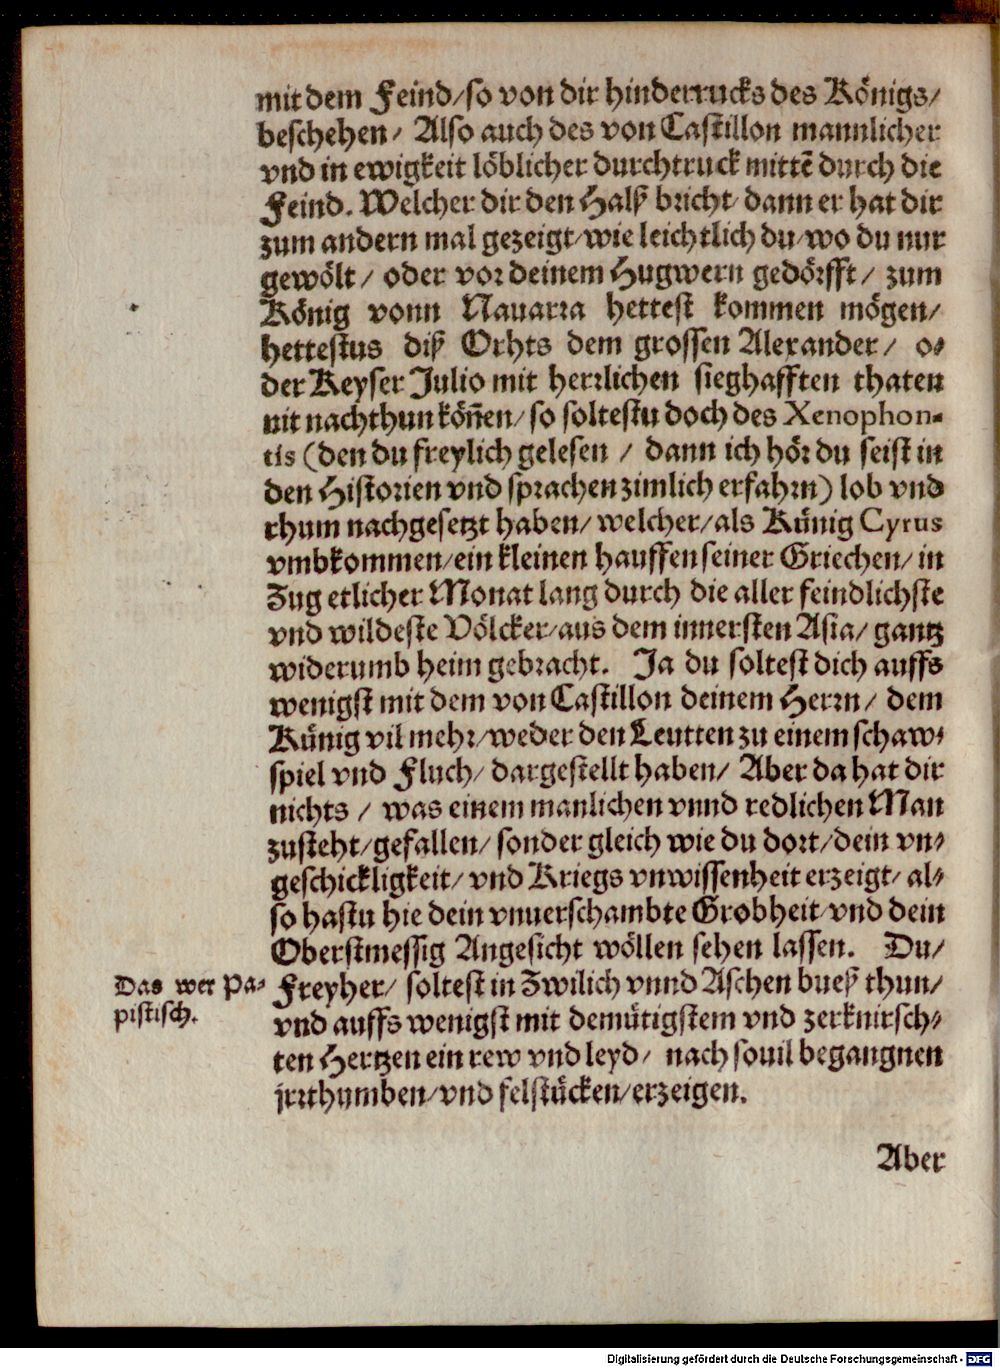 mit dem Feind/so von dir hinderrucks des Königs/
beschehen/ Also auch des von Castillon mannlicher
vnd in ewigkeit löblicher durchtruck mittē durch die
Feind. Welcher dir den Halß bricht/dann er hat dir
zum andern mal gezeigt/wie leichtlich du/wo du nur
gewölt/ oder vor deinem Hugwern gedörfft/ zum
König vonn Nauarra hettest kommen mögen/
hettestus diß Orhts dem grossen Alexander/ o-
der Keyser Julio mit herrlichen sieghafften thaten
nit nachthun köñen/ so soltestu doch des Xenophon-
tis (den du freylich gelesen / dann ich hör du seist in
den Historien vnd sprachen zimlich erfahrn) lob vnd
rhum nachgesetzt haben/ welcher/als Künig Cyrus
vmbkommen/ein kleinen hauffen seiner Griechen/ in
Zug etlicher Monat lang durch die aller feindlichste
vnd wildeste Völcker/aus dem innersten Asia/ gantz
widerumb heim gebracht. Ja du soltest dich auffs
wenigst mit dem von Castillon deinem Herrn/ dem
Künig vil mehr/weder den Leutten zu einem schaw-
spiel vnd Fluch/ dargestellt haben/ Aber da hat dir
nichts / was einem manlichen vnnd redlichen Man
zusteht/gefallen/ sonder gleich wie du dort/dein vn-
geschickligkeit/ vnd Kriegs vnwissenheit erzeigt/ al-
so hastu hie dein vnuerschambte Grobheit/vnd dein
Oberstmessig Angesicht wöllen sehen lassen. Du/
Das wer Pa-
pistisch.
Freyher/ soltest in Zwilich vnnd Aschen bueß thun/
vnd auffs wenigst mit demütigstem vnd zerknirsch-
ten Hertzen ein rew vnd leyd/ nach souil begangnen
jrrthumben/vnd felstücken/erzeigen.
Aber
Digitalisierung gefördert durch die Deutsche Forschungsgemeinschaft - DFG